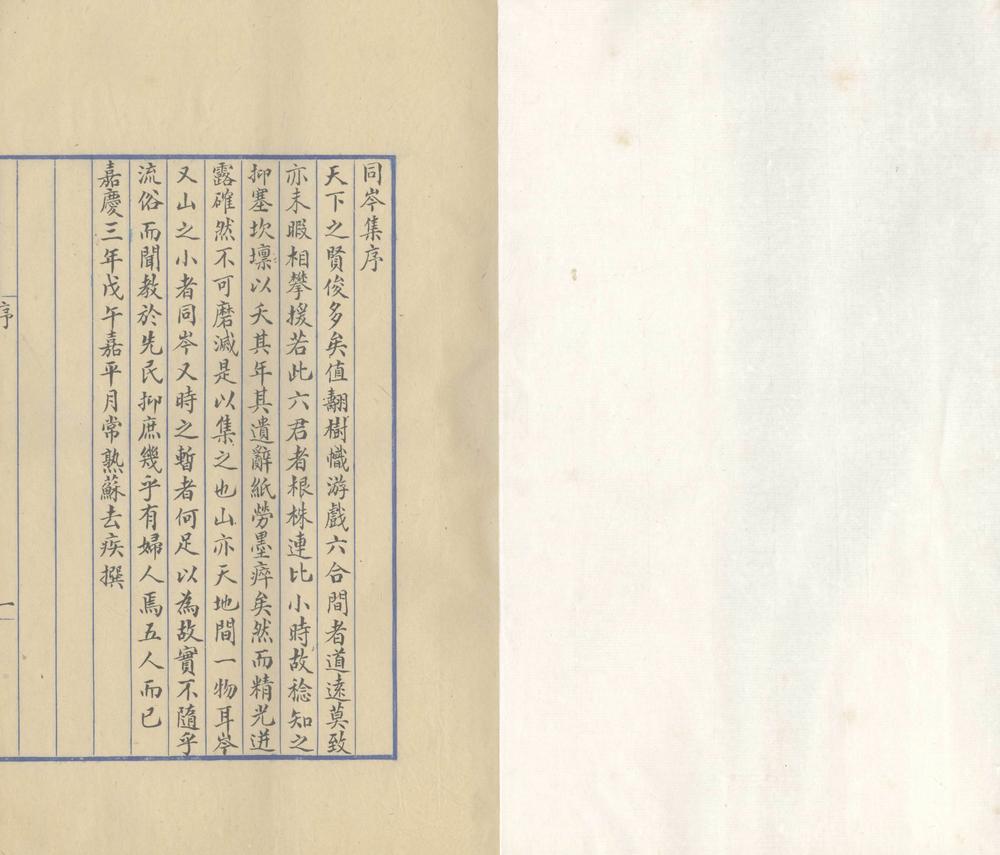 同岑集序
天下之賢俊多矣值翿樹幟游戲六合間者道逺莫致
亦未暇相攀援若此六君者根株連比小時故稔知之
抑塞坎壈以夭其年其遺辭紙勞墨瘁矣然而精光迸
露確然不可磨滅是以集之也山亦天地間一物耳岑
又山之小者同岑又時之暫者何足以為故實不隨乎
流俗而聞教於先民抑庶幾乎有婦人焉五人而已
嘉慶三年戊午嘉平月常熟蘇去疾撰
序
一